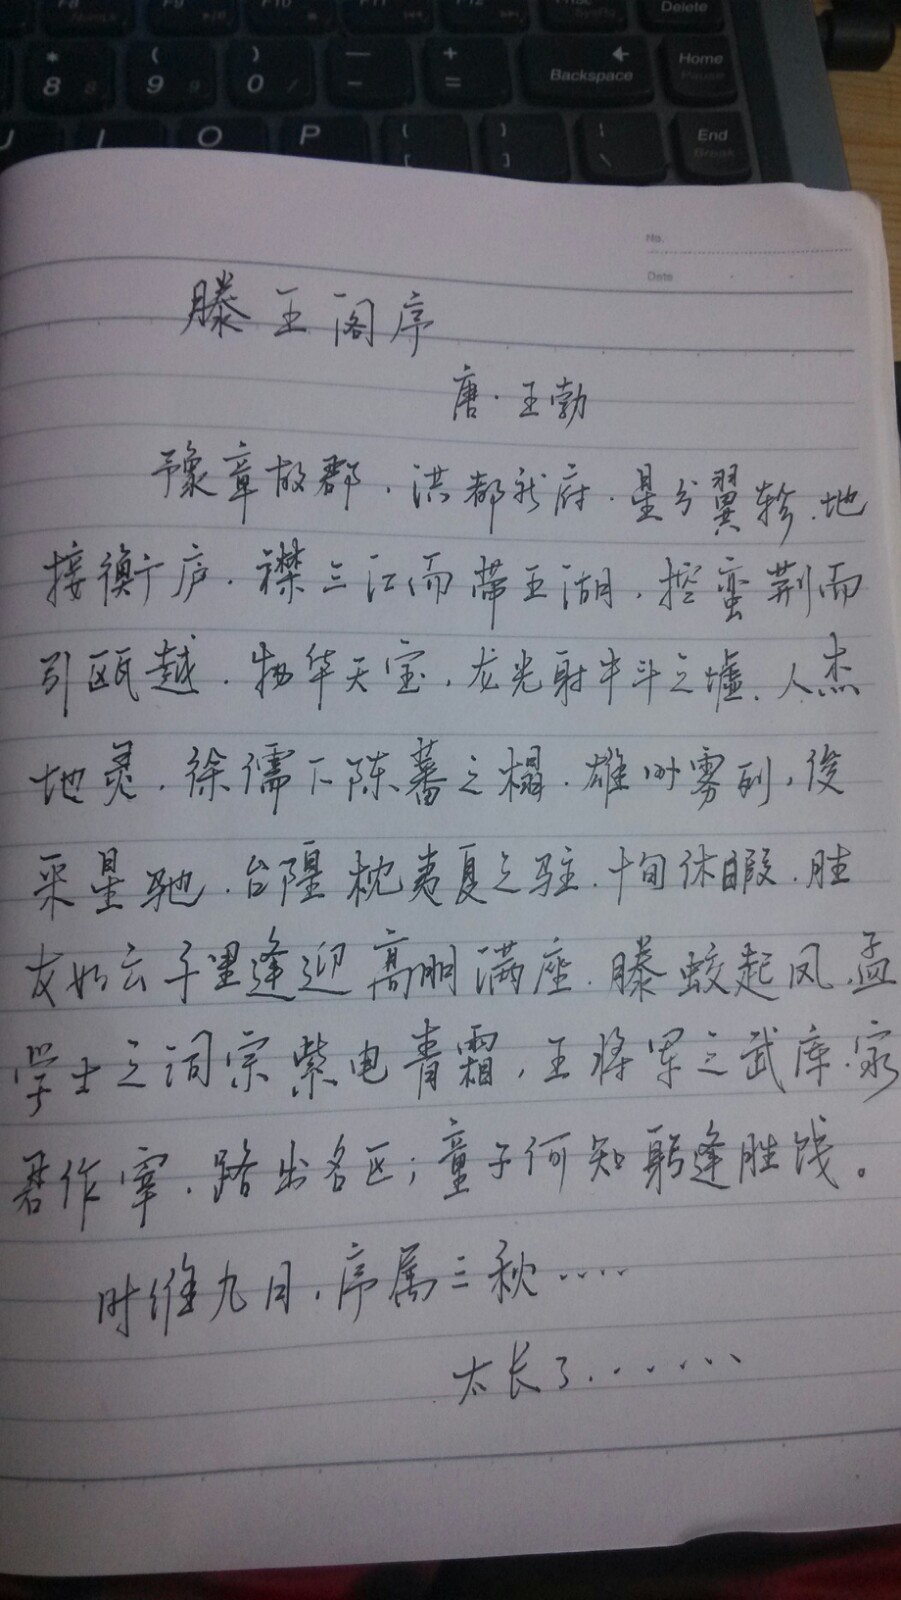 F8 F9 F10 F11 F12 Delete
* 8 ( 9 ) 0 — - + = Backspace Home
U I O P { [ } ] | \ End
No.
Date
滕王阁序
唐·王勃
豫章故郡，洪都新府。星分翼轸，地
接衡庐。襟三江而带五湖，控蛮荆而
引瓯越。物华天宝，龙光射牛斗之墟。人杰
地灵，徐儒下陈蕃之榻。雄州雾列，俊
采星驰。台隍枕夷夏之驻。十旬休暇。胜
友如云千里逢迎高朋满座。滕蛟起风，孟
学士之词宗紫电青霜，王将军之武库。家
君作宰，路出名区；童子何知躬逢胜饯。
时维九月，序属三秋····
太长了·······